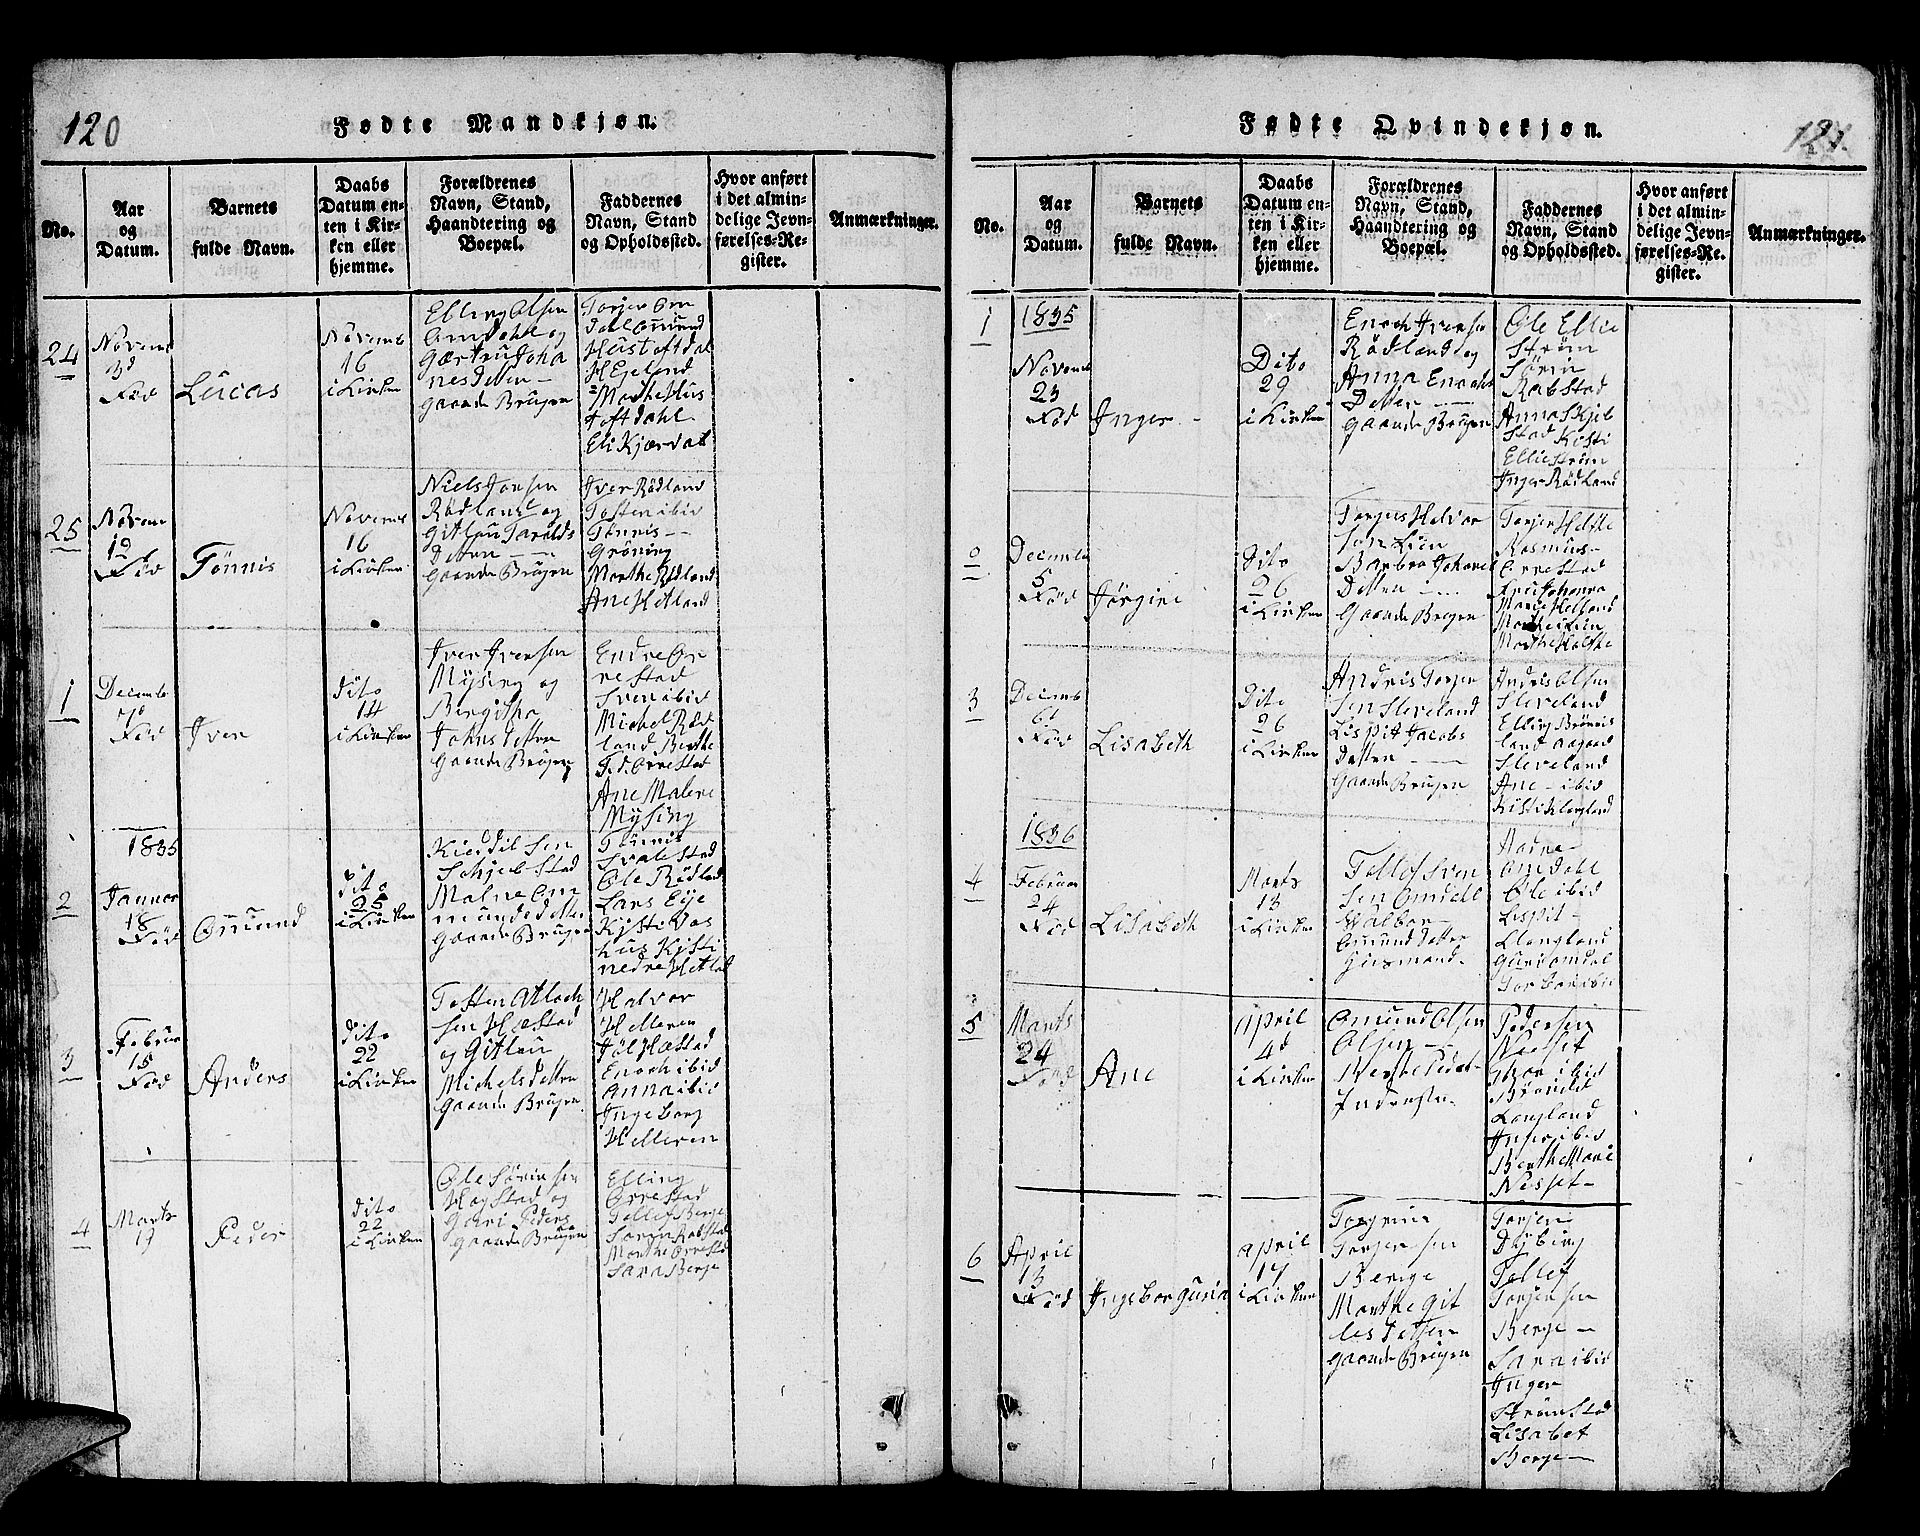 120
Fødte Mandkjøn.
No.
Aar
og
Datum.
Barnets
fulde Navn.
Daabs
Datum en-
ten i Kir-
ken eller
hjemme.
Forældrenes
Navn, Stand,
Haandtering og
Boepæl.
Faddernes
Navn, Stand
og Opholdssted.
Hvor anført
i det almin-
delige Jevn-
førelses-Re-
gister.
Anmærkninger.
24
Novemb
3d
Fød
Lucas
Novemb
16
i Kirken
Elling Olsen
Omdahl og
Gærtru Joha
nes Detter —
Gaards Brugen
Torjer Om
Dal Omund
Hustoftdal
Marthe Hus
Toftdahl
Eli Kjærdal
25
Novem
12
Fød
Tønnis
Novemb
16
i Kirken
Niels Jonsen
Rødland og
Gitlau Tarolds
Detter — —
Gaards Brugen
Iver Rødland
Tosten ibid
Tønnis —
Grøning
Marthe Rødland
Ane Hetland
1
Decemb
7d
Fød
Iver
Dito
14
i Kirken
Iver Iversen
Mysing og
Bergitha
Johns Detter
Gaards Brugen
Endre Or
re Stad
Sven ibid
Michel Rød
land Berthe
T.d. Orrestad
Ane Malene
Mysing
1835
2
Januar
18
Fød
Omund
Dito
25
i Kirken
Kieldil Sen
Schjeb Stad
Malne Om
munds Detter
Gaards Brugen
Tønnis
Svalestad
Ole Rødland
Lars Eye
Kjsti Vas
hus Kjsti
nedre Hetlad
3
Februar
15
Fød
Anders
Dito
22
i Kirken
Tosten Atlach
sen Hæstad
og Gitlau
Michels Detter
Gaards Brugen
Halvor
Helleren
Jøl Hæstad
Enoch ibid
Anna ibid
Ingeborg
Helleren
4
Marts
19
Peder
Dito
22
i Kirken
Ole Sørinsen
Hogstad og
Guri Peders
Gaards Brugen
Elling
Orrestad
Tollef Berge
Søren Rabstad
Marthe Orrestad
Sara Berge
121.
Fødte Qvindekjøn.
No.
Aar
og
Datum.
Barnets
fulde Navn.
Daabs
Datum en-
ten i Kir-
ken eller
hjemme.
Forældrenes
Navn, Stand,
Haandtering og
Boepæl.
Faddernes
Navn, Stand
og Opholdssted.
Hvor anført
i det almin-
delige Jevn-
førelses-Re-
gister.
Anmærkninger.
1
1835
Novemb
23
Fød
Inger
Dito
29
i Kirken
Enoch Iversen
Rødland og
Anna Enochs
Detter — —
Gaards Brugen
Ole Ellie
Strøm
Sørin
Rabstad
Anna Skjeb
Stad Kisti
Ellie Strøm
Inger Rødland
Decemb
5
Fød
Jørgine
Dito
26
i Kirken
Torjus Halvor
sen Lien
Barbra Johanes
Detter — —
Gaards Brugen
Torjer Helste
Rasmus
Orrestad
Marie Helland
Marthe Lien
Marthe Helste
3
Decemb
6t
Fød
Lisabeth
Dito
26
i Kirken
Andris Torjer
sen Sleveland
Lispit Jacobs
Detter — —
Gaards Brugen
Andris Olsen
Sleveland
Elling Brønis
land Aagaad
Sleveland
Ane — ibid
Kisti Klengland
1836
4
Februar
24
Fød
Lisabeth
Marts
13
i Kirken
Tollef Sven
sen Omdall
Walbor —
Omund Detter
Husmand.
Aadne —
Omdahl
Ole ibid
Lispit —
Llangland
Guri Omdal
Torbor ibid
5
Marts
24
Fød
Ane
April
4d
i Kirken
Omund Olsen
Olsen —
Berthe Peder
Inderste
Pedersen
Nesset
Thor ibid
Brøndet
Langland
Inger ibid
Berthe Marie
Nesset —
6
April
13
Fød
Ingeborguria
April
17
i Kirken
Torgrim
Torjersen
Berge
Marthe Git
les Detter
Gaards Brugen
Torjen
Dybing
Tollef
Torjensen
Berge —
Sara ibid
Inger
Strømstad
Lisabet
Berge —